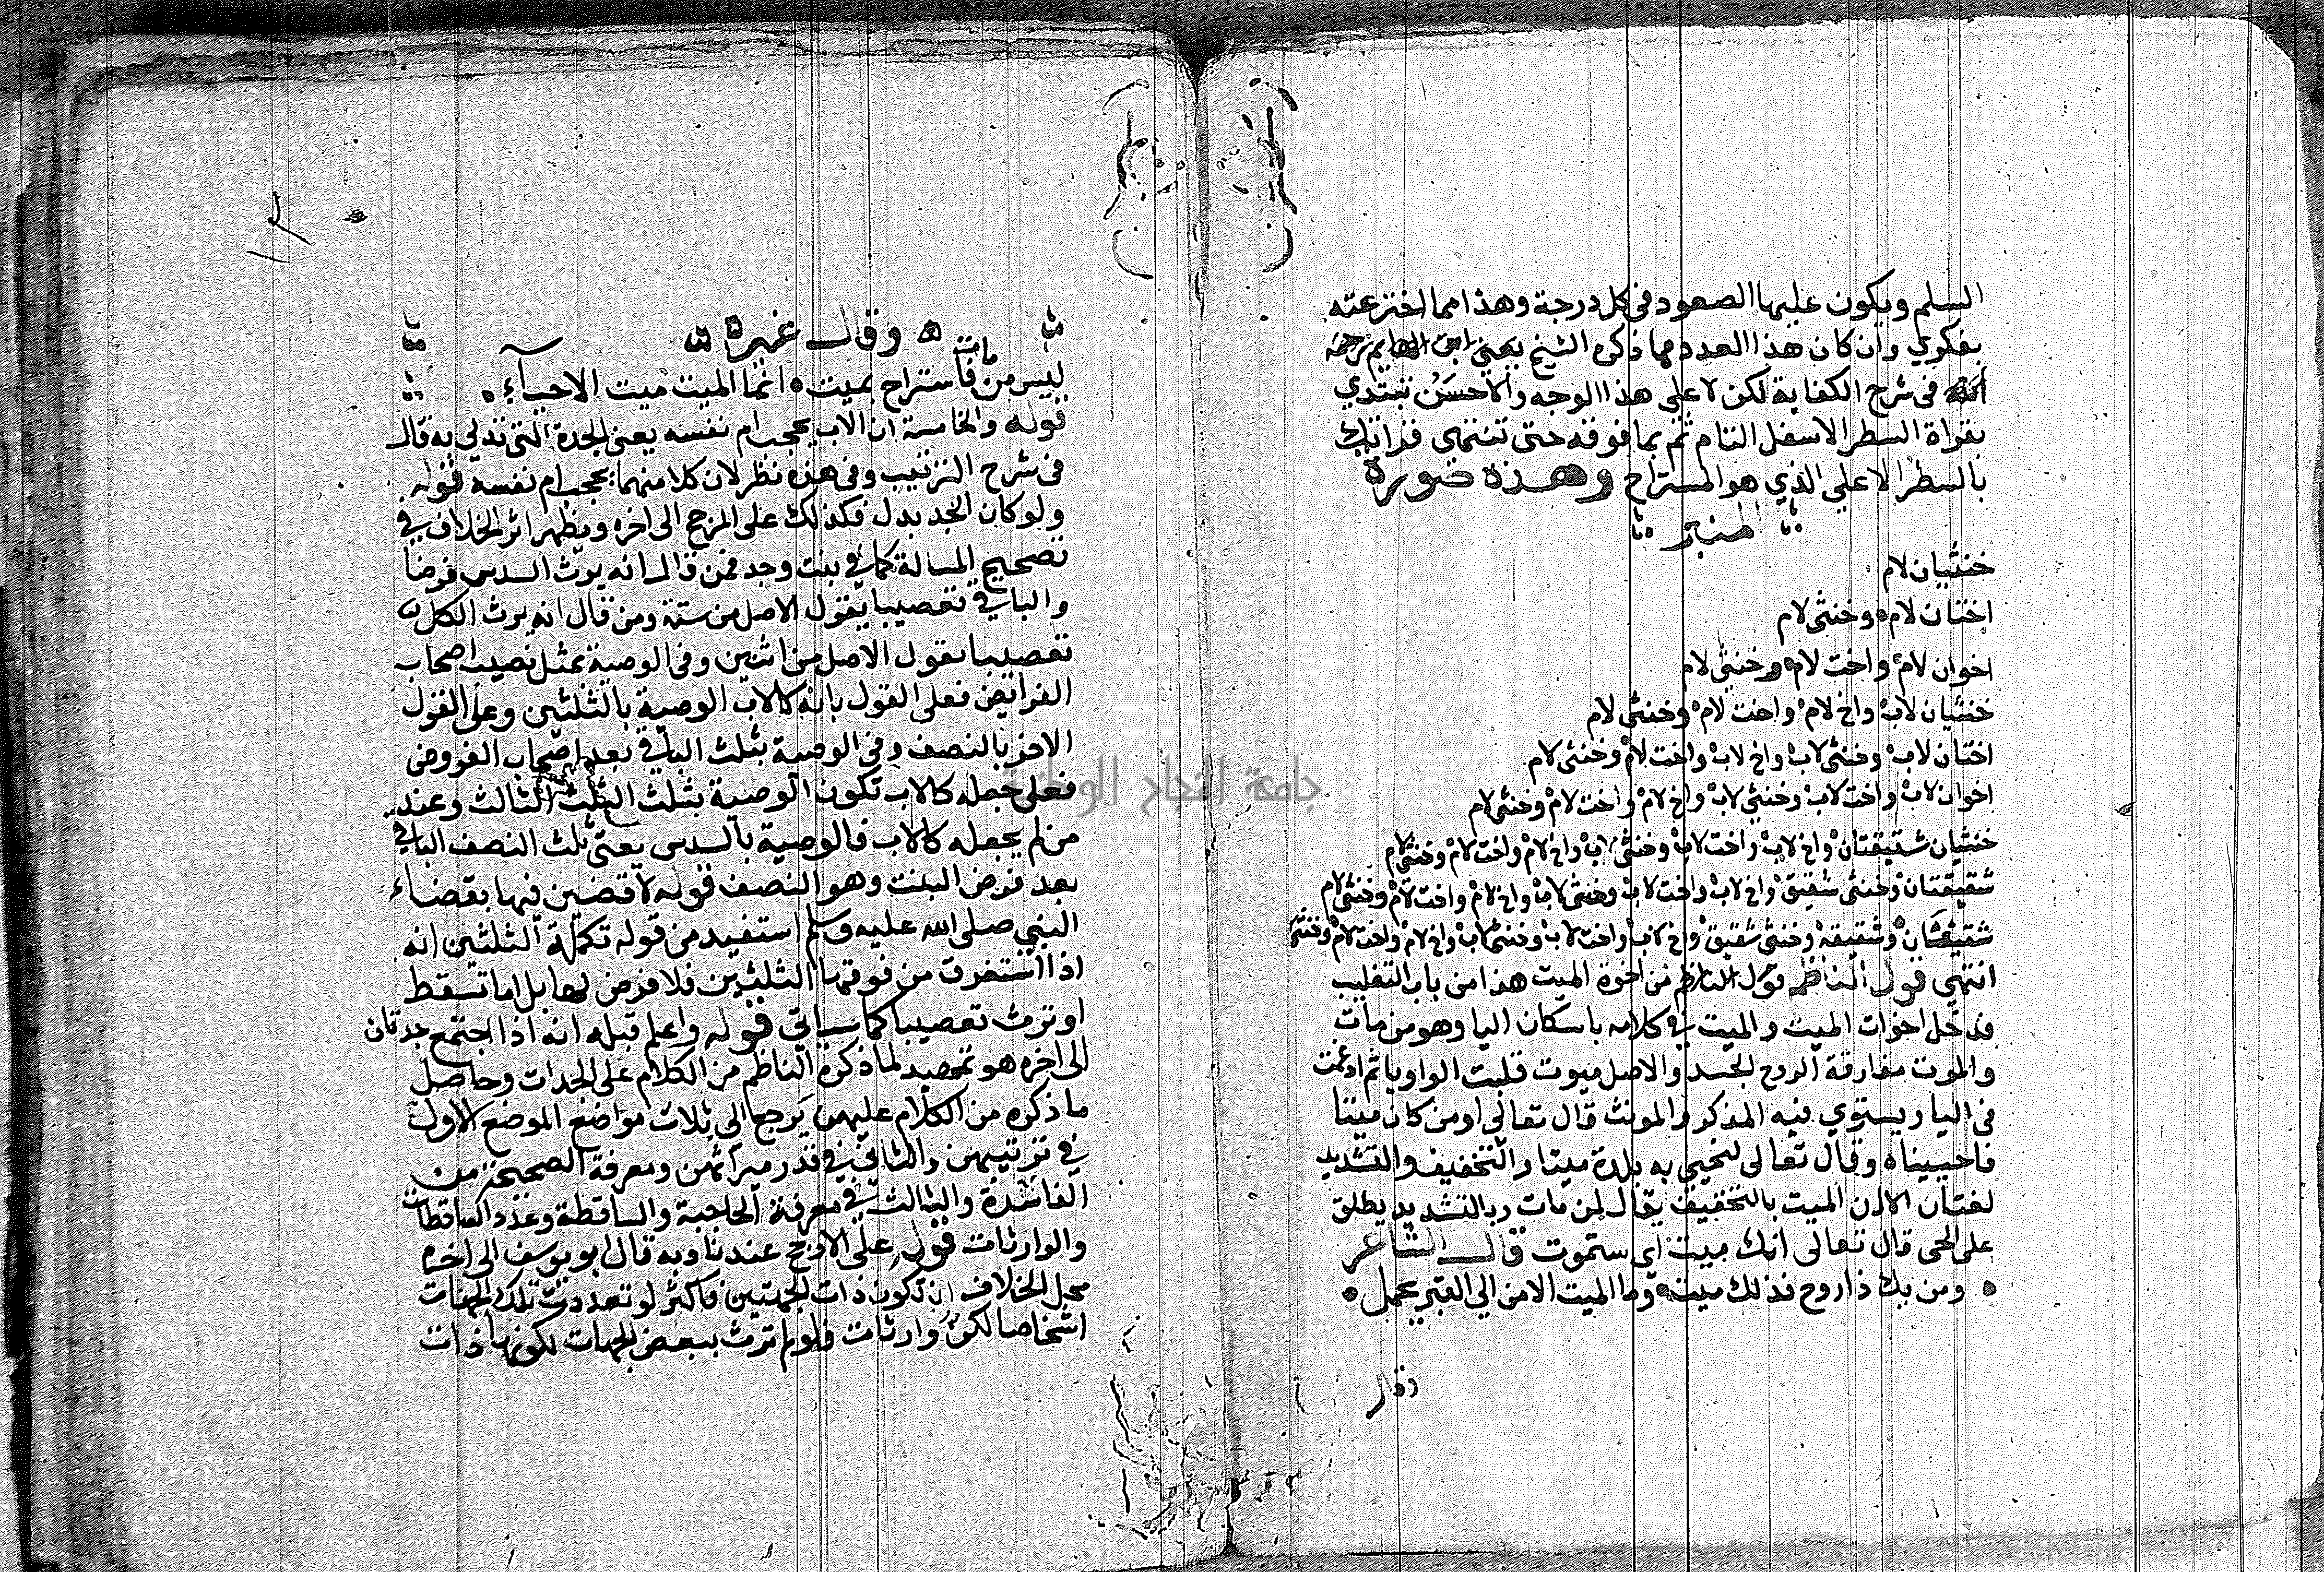 السلم ويكون عليها الصعود في كل درجة وهذا مما اخترعته
بفكري وان كان هذا العدد مما ذكره الشيخ يعني ابن الهايم رحمه
الله في شرح الكفاية لكن لا على هذا الوجه والاحسن نبتدي
بقراة السطر الاسفل التام ثم بما فوقه حتى تنتهى قراتك
بالسطر الاعلي الذي هو المستراح وهذه صورة
المنبر
خنثيان لام
اختان لام وخنثى لام
اخوان لام واخت لام وخنثى لام
خنثيان لاب واخ لام واخت لام وخنثى لام
اختان لاب وخنثى لاب واخ لاب واخت لام وخنثى لام
اخوان لاب واخت لاب وخنثى لاب واخ لام واخت لام وخنثى لام
خنثيان شقيقتان واخ لاب واخت لاب وخنثى لاب واخ لام واخت لام وخنثى لام
شقيقتان وخنثى شقيق واخ لاب واخت لاب وخنثى لاب واخ لام واخت لام وخنثى لام
شقيقان وشقيقة وخنثى شقيق واخ لاب واخت لاب وخنثى لاب واخ لام واخت لام وخنثى
انتهي قول الناظم قول الناظم من اخوة الميت هذا من باب التغليب
فدخل اخوات الميت والميت في كلامه باسكان اليا وهو من مات
والموت مفارقة الروح الجسد والاصل ميوت قلبت الواو يا ثم ادغمت
في اليا ويستوي فيه المذكر والمونث قال تعالي اومن كان ميتا
فاحييناه وقال تعالى لنحيي به بلدة ميتا والتخفيف والتشديد
لغتان الا ان الميت بالتخفيف يقال لمن مات وبالتشديد يطلق
على الحى قال تعالى انك ميت اى ستموت قال الشاعر
ومن يك ذا روح فذلك ميت وما الميت الا من الي القبر يحمل
وقال
وقال غيره
ليس من مات فاستراح بميت انما الميت ميت الاحيآء
قوله والخامسة ان الاب يحجب ام نفسه يعني الجدة التي تدلي به قال
في شرح الترتيب وفي هذه نظر لان كلا منهما يحجب ام نفسه قوله
ولو كان الجد بدل فكذلك على المرجح الى اخره ويظهر اثر الخلاف في
تصحيح المسالة كما في بنت وجد فمن قال انه يرث السدس فرضا
والباقي تعصيبا يقول الاصل من ستة ومن قال انه يرث الكل
تعصيبا يقول الاصل من اثنين وفي الوصية بمثل نصيب اصحاب
الفرايض فعلى القول بانه كالاب الوصية بالثلثين وعلى القول
الاخر بالنصف وفي الوصية بثلث الباقي بعد اصحاب الفروض
فعلى جعله كالاب تكون الوصية بثلث الثلث الثالث وعند
من لم يجعله كالاب فالوصية بالسدس يعني ثلث النصف الباقي
بعد فرض البنت وهو النصف قوله لاقضين فيها بقضاء
النبي صلى الله عليه وسلم استفيد من قوله تكملة الثلثين انه
اذا استغرقت من فوقها الثلثين فلا فرض لها بل اما تسقط
او ترث تعصيبا كما سياتي قوله واعلم قبله انه اذا اجتمع جدتان
الى اخره هو تمهيد لما ذكره الناظم من الكلام على الجدات وحاصل
ما ذكره من الكلام عليهن يرجع الى ثلاث مواضع الموضع الاول
في ترتيبهن والثاني في قدر ميراثهن ومعرفة الصحيحة من
الفاسدة والثالث في معرفة الحاجبة والساقطة وعدد الساقطات
والوارثات قوله على الارجح عندنا وبه قال ابو يوسف الى اخره
محل الخلاف ان تكون ذات الجهتين فاكثر لو تعددت تلك الجهات
اشخاصا لكن وارثات فلو لم ترث ببعض الجهات لكونها ذات
جامعة النجاح الوطنية